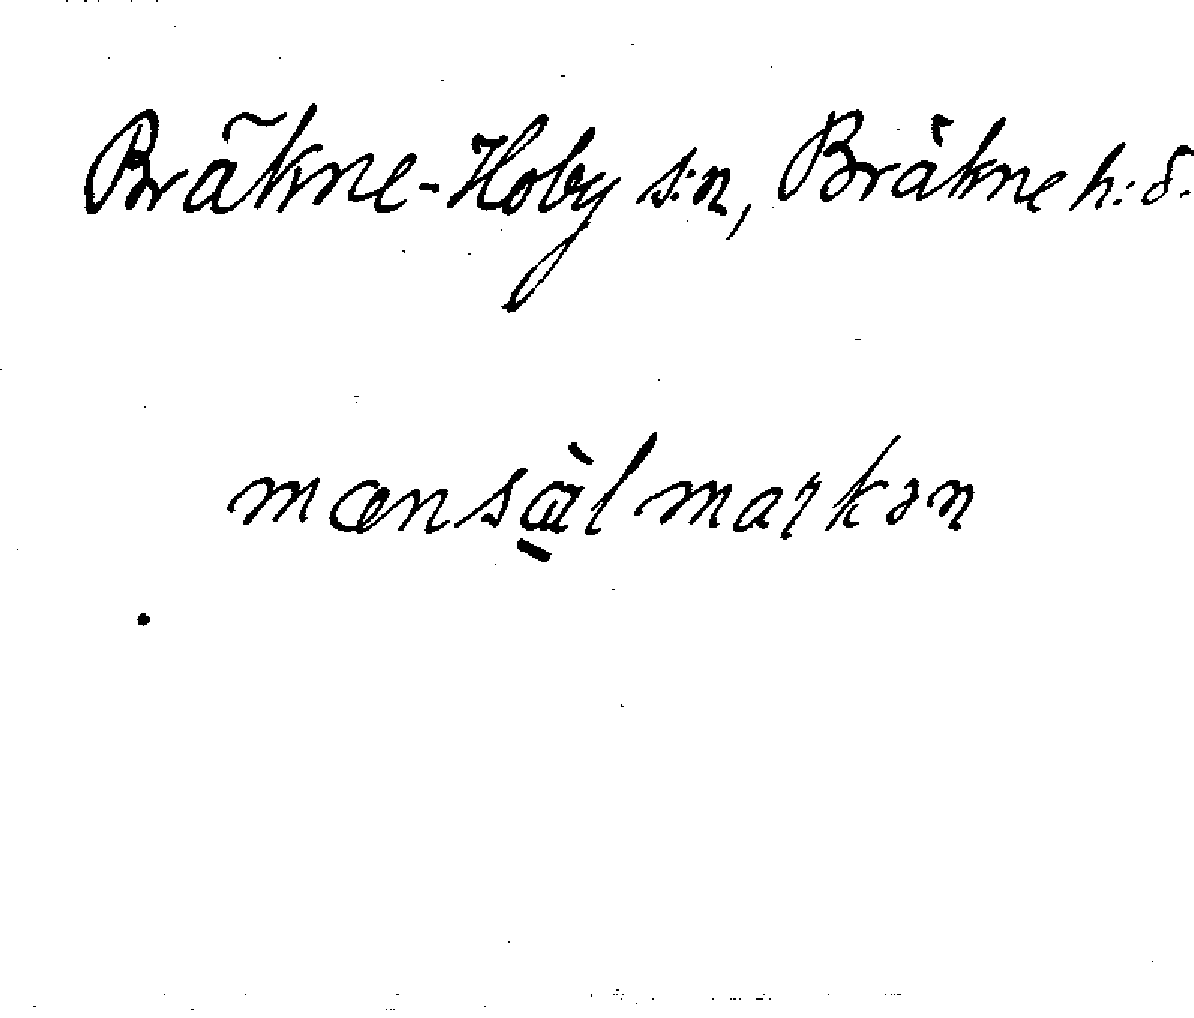 Bräkne-Hoby s:n, Bräkne h:d.
mænsὰ̱lmarkən